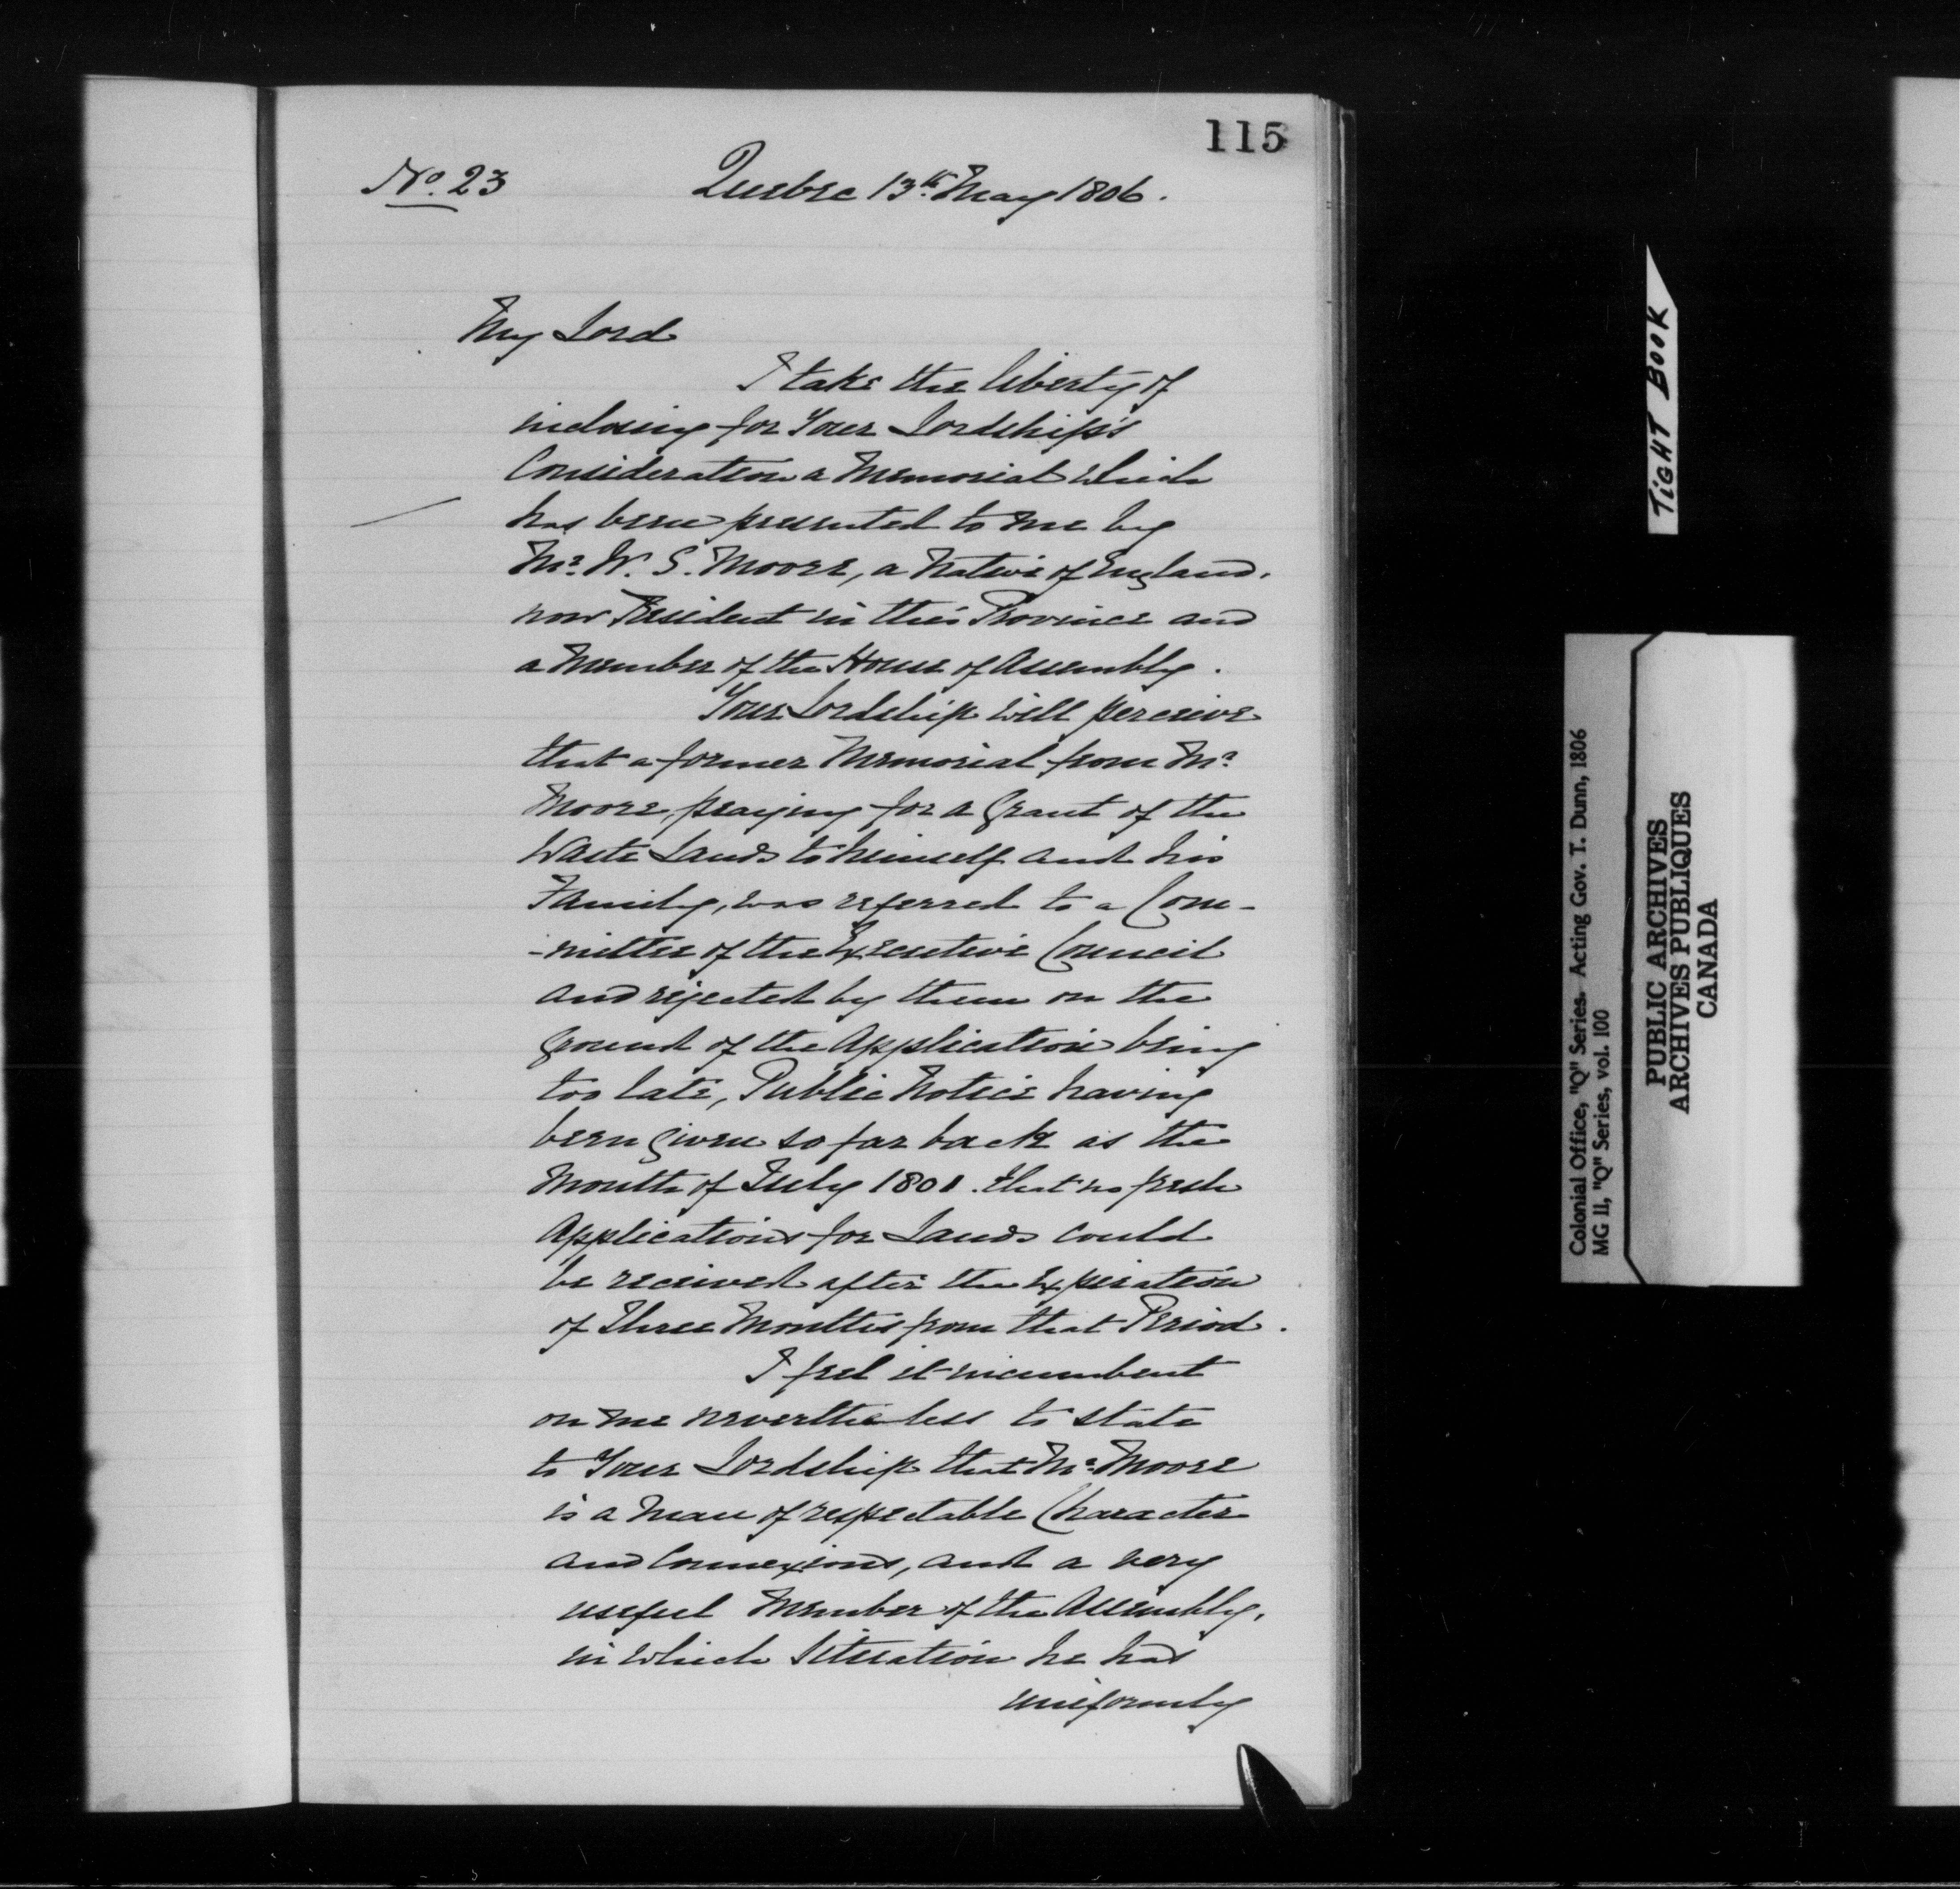 115
No. 23 Quebec 13th May 1806.
My Lord
I take the liberty of
inclosing for Your Lordship's
Consideration a Memorial which
has been presented to me by
Mr. W. S. Moore, a Native of England,
now Resident in this Province and
a Member of the House of Assembly.
Your Lordship will perceive
that a former Memorial from Mr.
Moore, praying for a Grant of the
Waste Lands to himself and his
Family, was referred to a Com-
-mittee of the Executive Council
and rejected by them on the
Ground of the Application being
too late, Public Notice having
been given so far back as the
Month of July 1801. that no fresh
Applications for Lands could
be received after the Expiration
of Three Months from that Period.
I feel it incumbent
on me nevertheless to state
to Your Lordship that Mr. Moore
is a Man of respectable Character
and Connexions, and a very
useful Member of the Assembly,
in which Situation he has
uniformly
TIGHT BOOK
Colonial Office, "Q" Series. Acting Gov. T. Dunn, 1806
MG 11, "Q" Series, vol. 100
PUBLIC ARCHIVES
ARCHIVES PUBLIQUES
CANADA